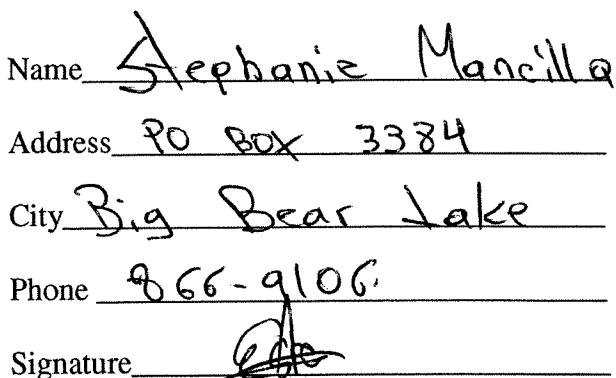 Name Stephanie Mancilla
Address PO BOX 3384
City Big Bear Lake
Phone 866-9106
Signature